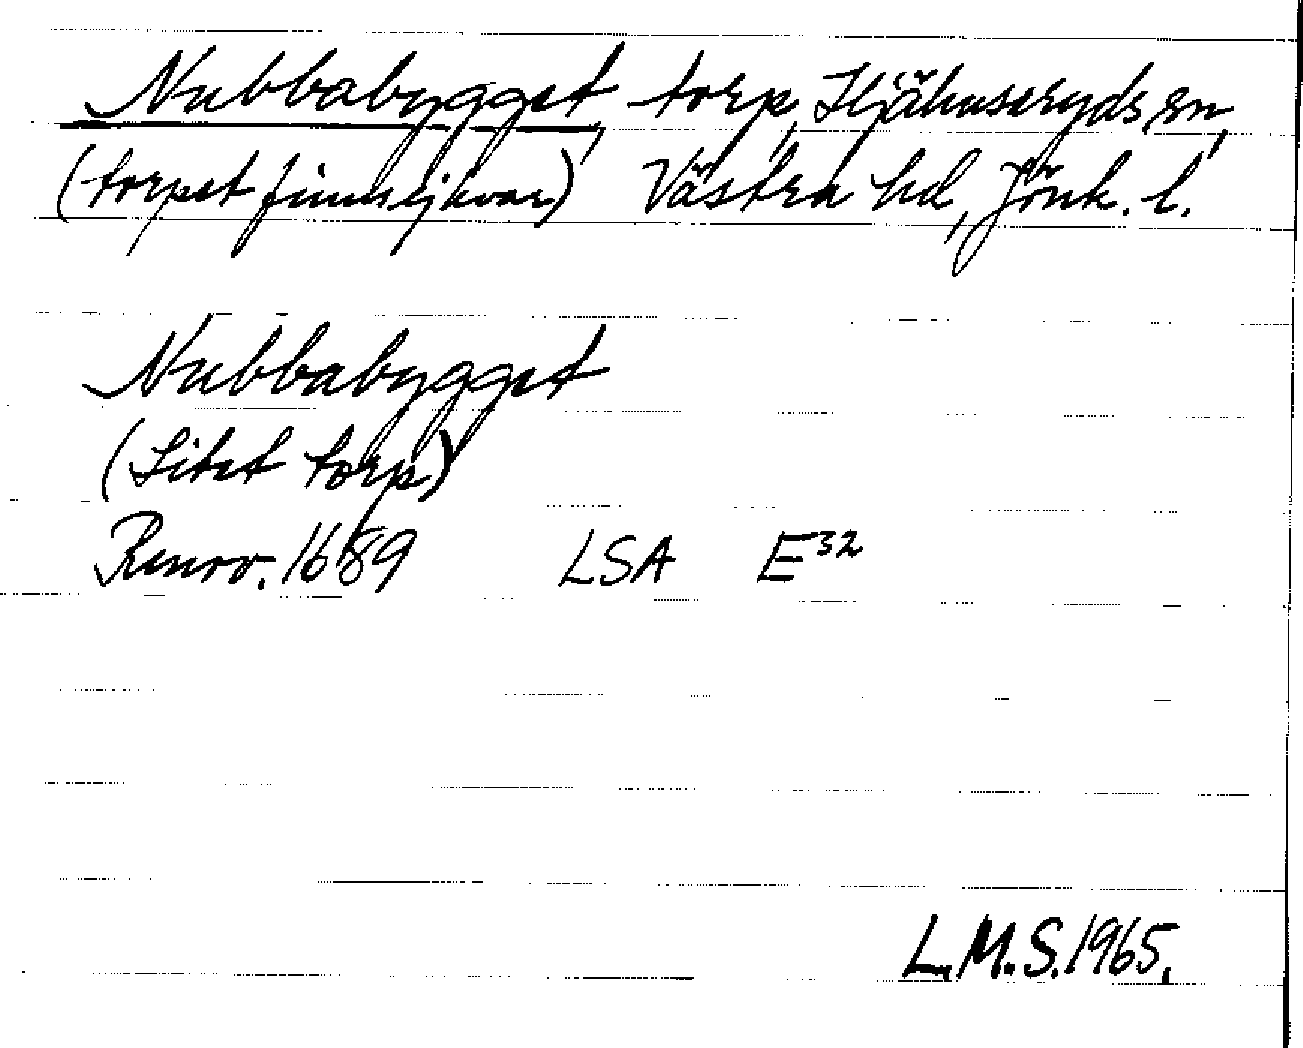 Nubbabygget, torp, Hjälmseryds sn,
(torpet finns ej kvar) Västra hd, Jönk. l.
Nubbabygget
(Litet torp)
Renov. 1689 LSA E32
L.M.S. 1965.